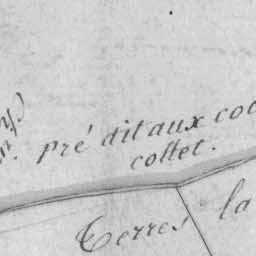 pré dit aux
collet.
Terres la